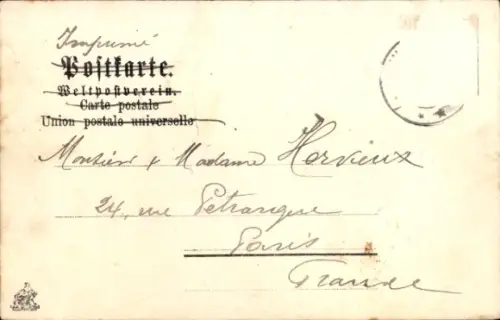 Imprimé
Postkarte.
Weltpostverein.
Carte postale
Union postale universelle
Monsieur & Madame Hervieux
24, rue Pétrarque
Paris
France